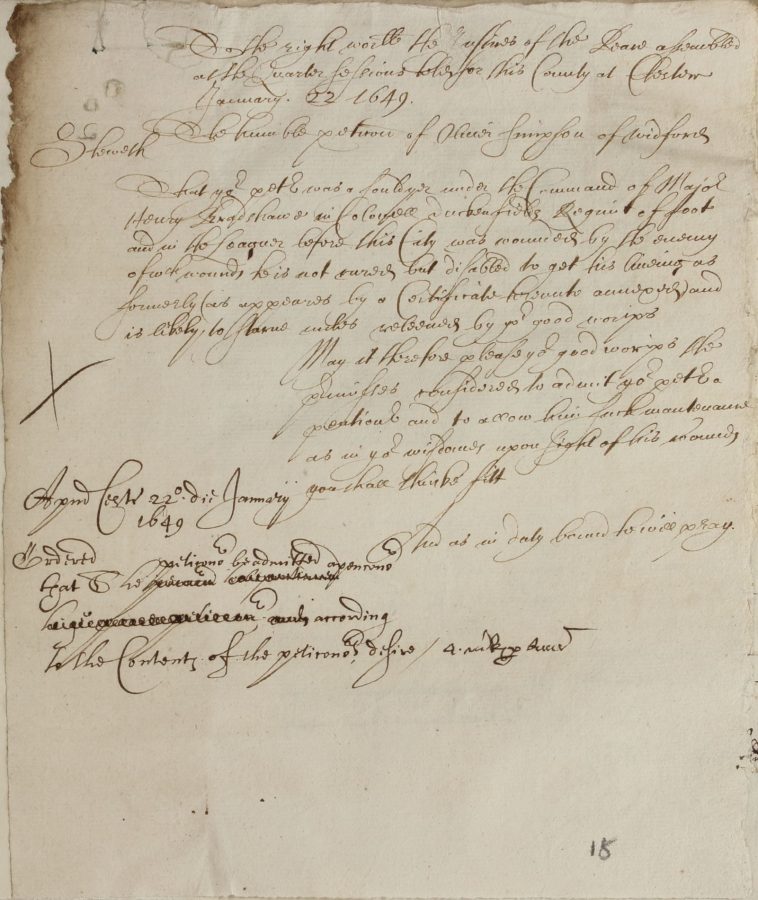 To the right worll the Justices of the Peace assembled
at the Quarter sessions holden for this County at Chester
January. 22 1649.
The humble peticon of Oliver Simpson of
Sheweth
That yor petr was a souldyer under the Command of Major
Henry Bradshawe in Colonell Duckenfields Regimt of foot
and in the leaguer before this City was wounded by the enemy
of wch wounds he is not cured but disabled to get his liveing as
formerly (as appeares by a Certificate hereunto annexed) and
is likely to starve unles releeved by yor good worsps
May it therefore please yor good worsps the
premisses considered to admit yor petr a
pentionr and to allow him such maintenance
as in yor wisdomes upon sight of his wounds
you shall thinke fitt
And as in duty bound he will pray.
Apud Cestr 22o. die Januarij
1649
Ordered peticonr be admitted a penconr
that the
according
to the Contents of the peticonrs desire /
18